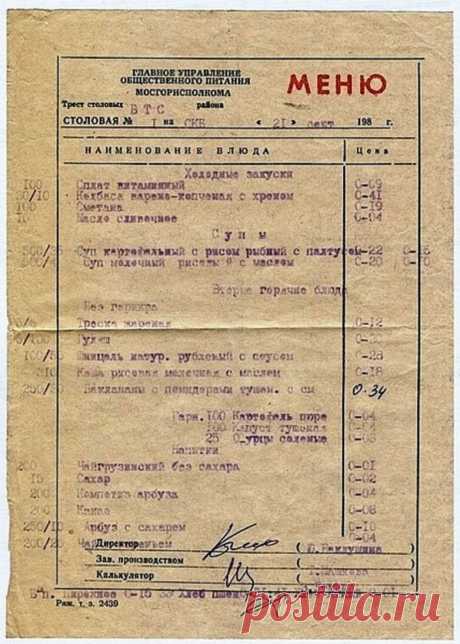 ГЛАВНОЕ УПРАВЛЕНИЕ
ОБЩЕСТВЕННОГО ПИТАНИЯ
МОСГОРИСПОЛКОМА
МЕНЮ
Трест столовых ВТС района
СТОЛОВАЯ № I на СКБ « 21 » сент 198 г.
НАИМЕНОВАНИЕ БЛЮДА Цена
Холодные закуски
100 Сллат витаминный 0-09
/10 Колбаса варено-копченая с хреном 0-41
100 Сметана 0-19
Масло сливочное 0-04
Супы
500/25 Суп картофельный с рисом рыбный с палтусем 0-22
Суп молочный с маслем 0-20
Вторые горячие блюда
Без гарнира
Треска жареная 0-12
/100 Гуляш
100/50 Шницаль натур. рубленый с соусем 0-28
210 Каша рисовая молочная с маслем 0-18
250/30 Баклажаны с помидерами тушен. с см 0-34
Гарн. 100 Картофель пюре 0-04
Капуст тушеная 0-04
25 О урцы соленые 0-03
Напитки
200 Чайгрузинский без сахара 0-01
15 Сахар 0-02
200 Компетиз арбуза 0-04
200 Какао 0-08
250/10 Арбуз с сахарем 0-10
200/25 0-04
Директор
Зав. производством
Калькулятор
Пирежное 0-15 Хлеб
Рмж. т. з. 2439
postila.ru